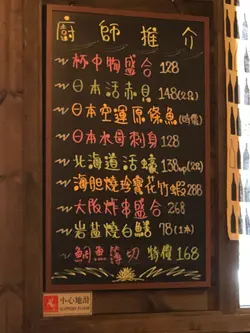 廚師推介
杯中物盛合 128
日本活赤貝 148(2隻)
日本空運原條魚(時價)
日本水母刺身 128
北海道活蠔 138up(2隻)
海胆燒珍寶花竹蝦 288
大阪炸串盛合 268
岩盐燒白鱔 78(1本)
鯛魚薄切 特價 168
小心地滑
SLIPPERY FLOOR